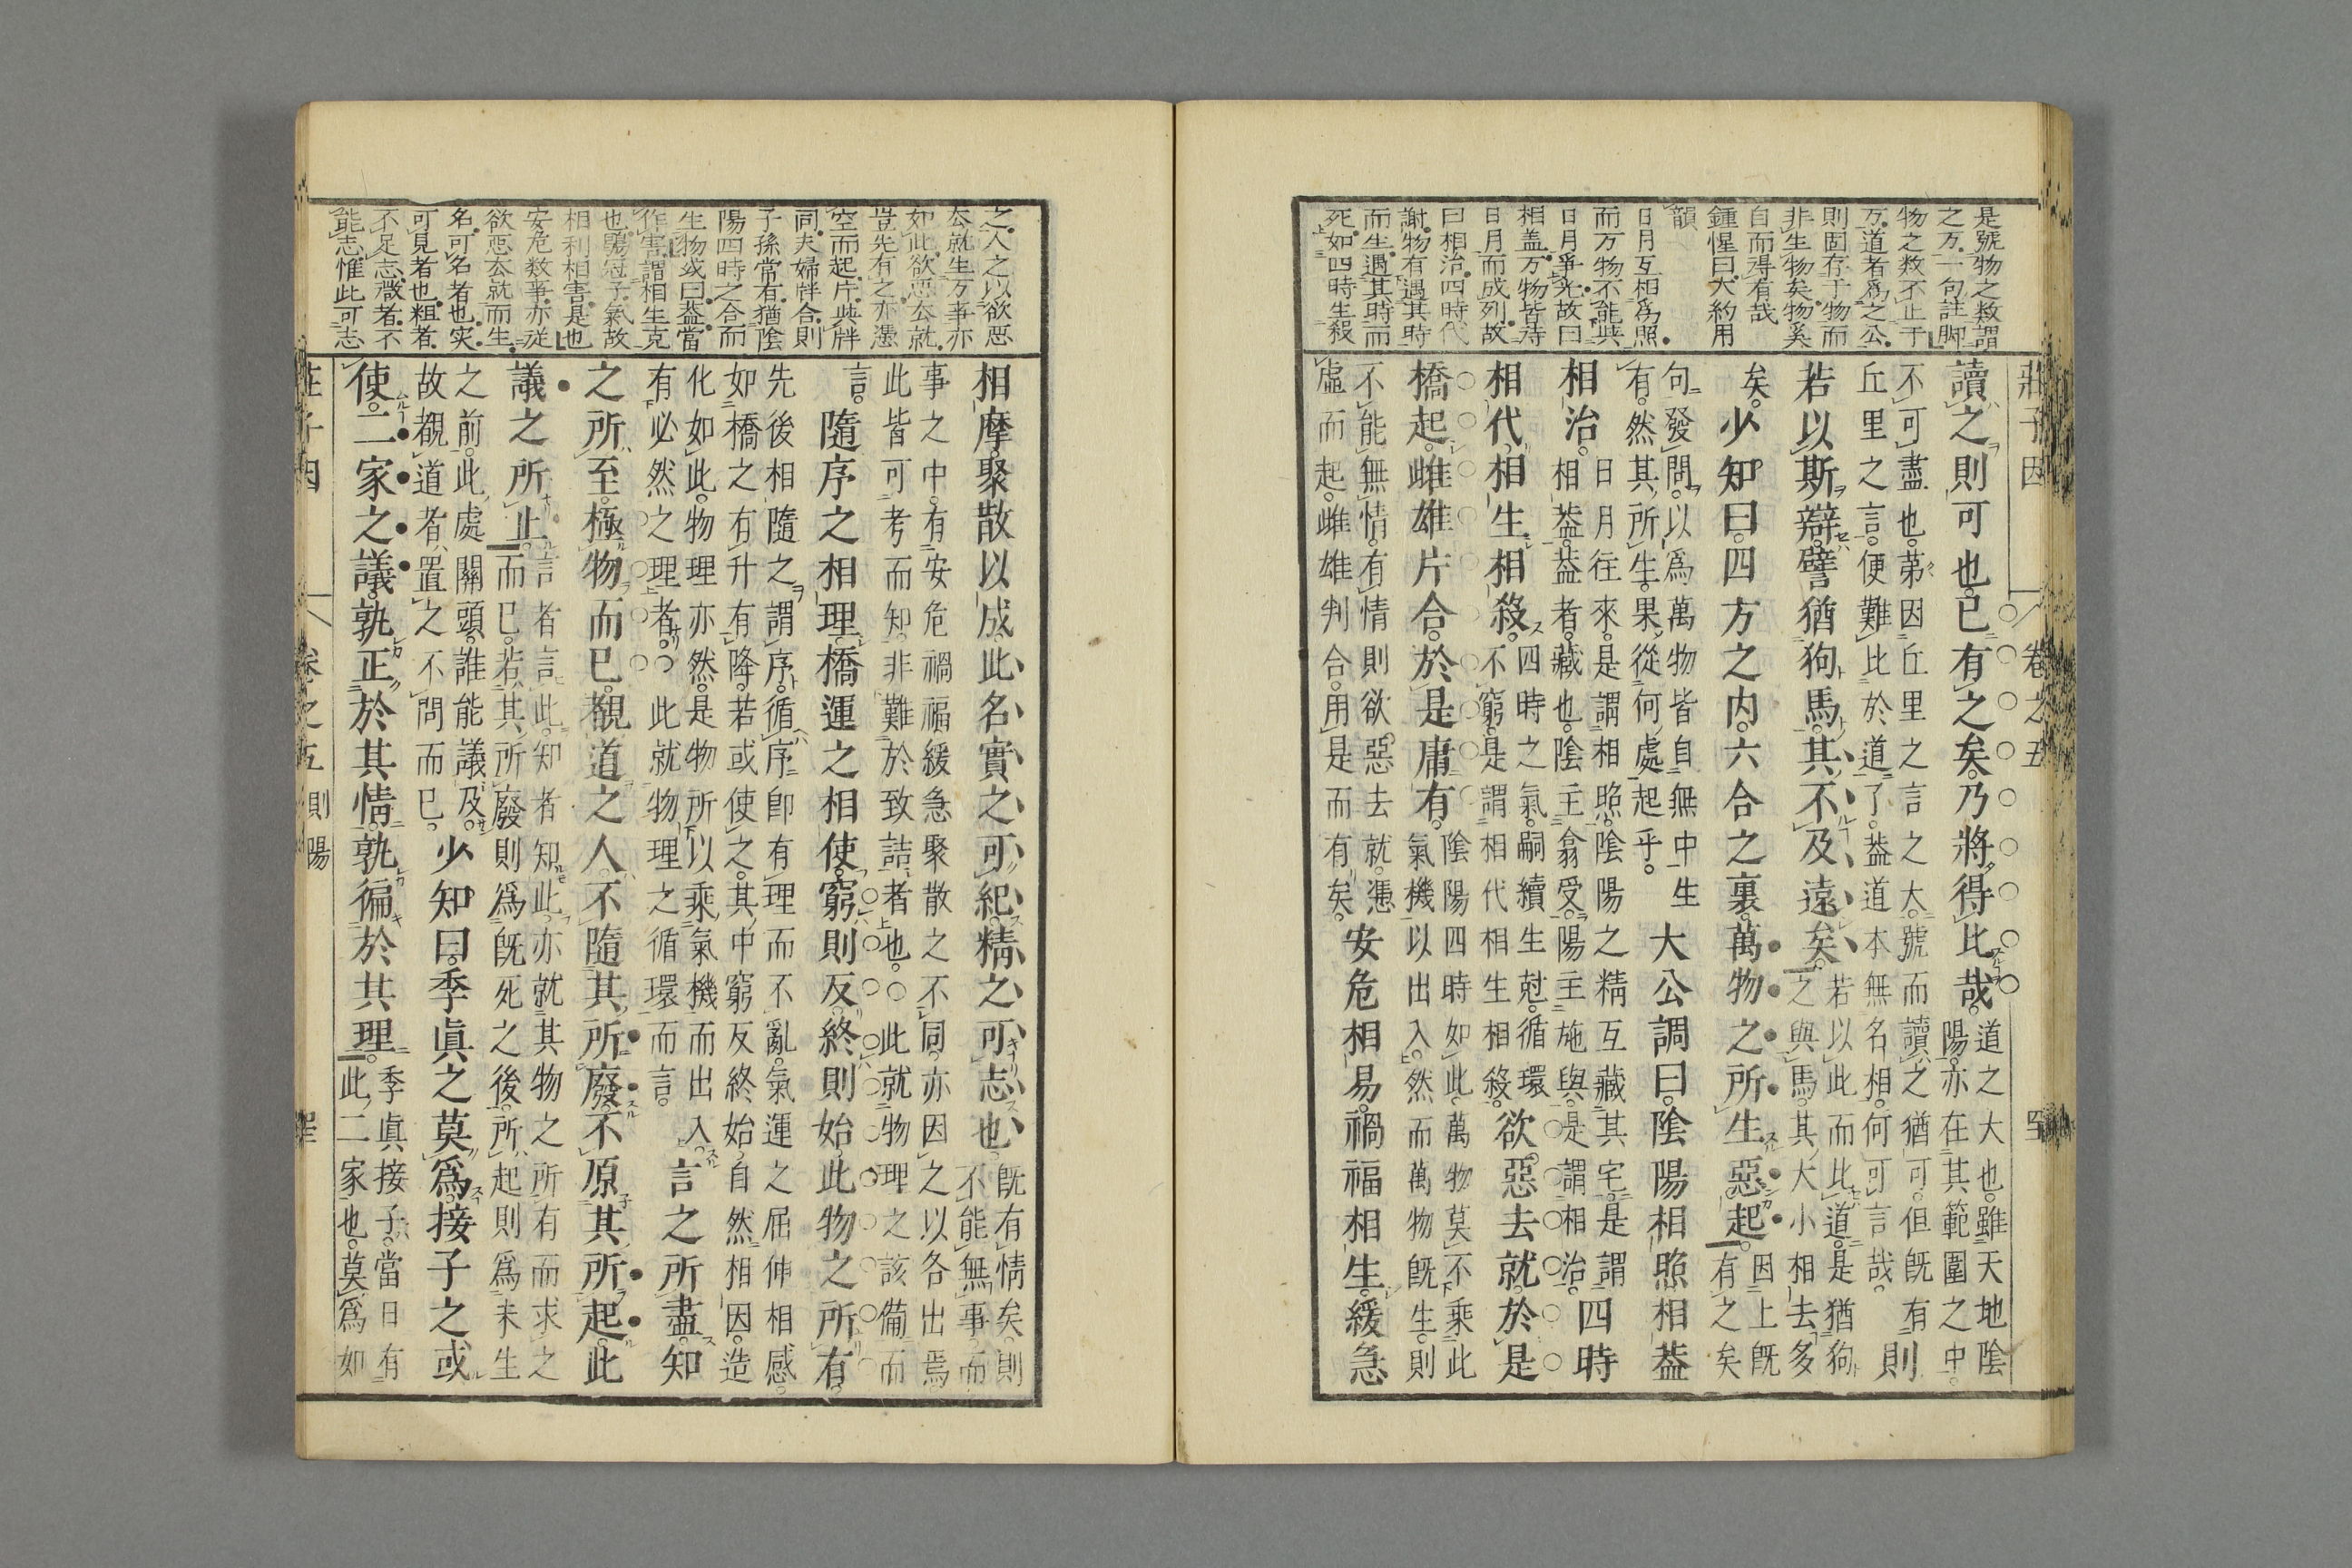 莊子因 卷之五
是號物之数謂
之万一句註脚
物之数不止于
万道者爲之公
則固存于物而
非生物矣物奚
自而得有哉
鍾惺曰大約用
韻
日月互相爲照
而万物不能與
日月爭光故曰
相盖万物皆待
日月而成列故
曰相治四時代
謝物有遇其時
而生遇其時而
死如四時生殺
讀之則可也已有之矣乃將得比哉道之大也雖天地陰
陽亦在其範圍之中
不可盡也苐因丘里之言之大號而讀之猶可但既有
丘里之言便難比於道了葢道本無名相何可言哉則
若以斯辯譬猶狗馬其不及遠矣若以此而比道是猶狗
之與馬其大小相去多
矣少知曰四方之内六合之裏萬物之所生惡起因上既
有之矣
句發問以爲萬物皆自無中生
有然其所生果從何處起乎大公調曰陰陽相照相葢
相治日月往來是謂相照陰陽之精互藏其宅是謂
相葢葢者藏也陰主翕受陽主施與是謂相治四時
相代相生相殺四時之氣嗣續生尅循環
不窮是謂相代相生相殺欲惡去就於是
橋起雌雄片合於是庸有陰陽四時如此萬物莫不乘此
氣機以出入然而萬物既生則
不能無情有情則欲惡去就憑
虛而起雌雄判合用是而有矣安危相易禍福相生緩急
之人之以欲惡
去就生万事亦
如此欲惡去就
豈先有之亦憑
空而起片與牉
同夫婦牉合則
子孫常有猶陰
陽四時之合而
生物或曰葢當
作害謂相生克
也鶡冠子氣故
相利相害是也
安危数事亦従
欲惡去就而生
名可名者也実
可見者也粗者
不足志微者不
能志惟此可志
相摩聚散以成此名實之可紀精之可志也既有情矣則
不能無事而
事之中有安危禍福緩急聚散之不同亦因之以各出焉
此皆可考而知非難於致詰者也○此就物理之該備而
言隨序之相理橋運之相使窮則反終則始此物之所有
先後相隨之謂序循序卽有理而不亂氣運之屈伸相感
如橋之有升有降若或使之其中窮反終始自然相因造
化如此物理亦然是物所以乘氣機而出入
有必然之理者○此就物理之循環而言言之所盡知
之所至極物而已覩道之人不隨其所廢不原其所起此
議之所止言者言此知者知此亦就其物之所有而求之
而已若其所廢則爲既死之後所起則爲未生
之前此處關頭誰能議及
故覩道者置之不問而已少知曰季眞之莫爲接子之或
使二家之議孰正於其情孰徧於其理季眞接子當日有
此二家也莫爲如
莊子因 卷之五 則陽